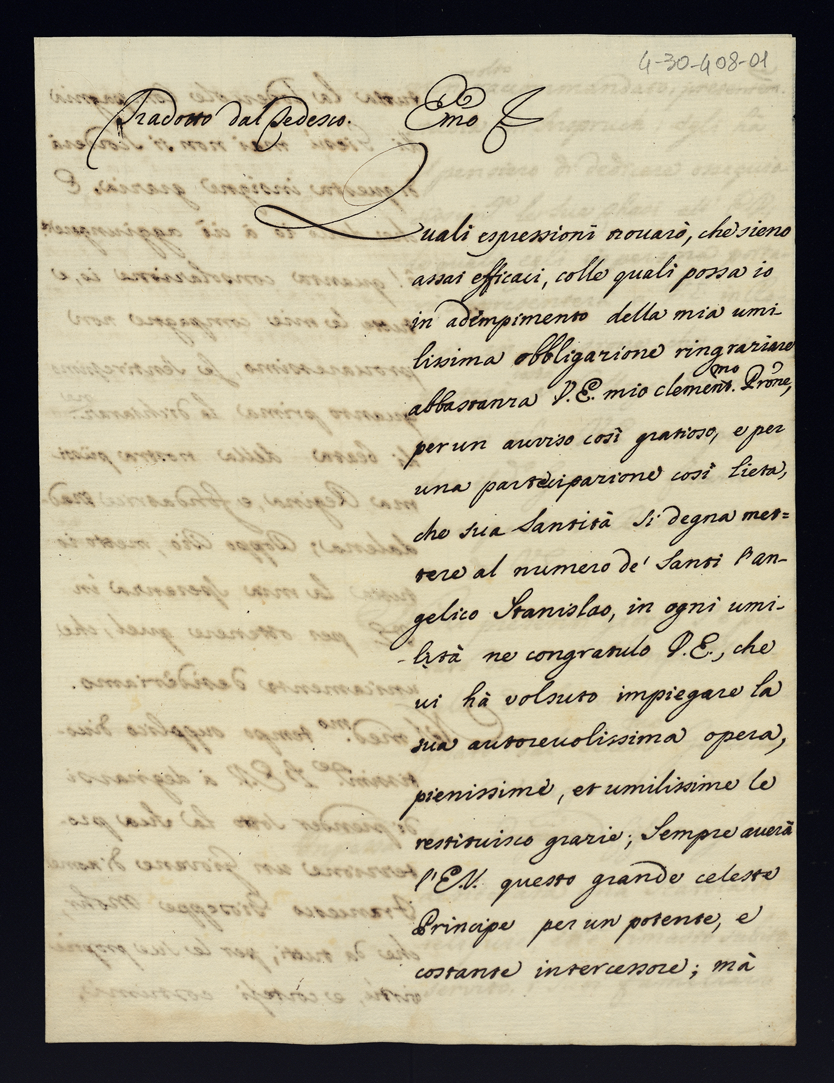 4-30-408-01
Tradotto dal Tedesco.
Emo
Quali espressioni trouarò, che sieno
assai efficaci, colle quali possa io
in adempimento della mia umi-
lissima obbligazione ringraziare
abbastanza V.E. mio clement.mo Prone,
per un auviso così gratioso, e per
una partecipazione così lieta,
che sua Santità si degna met=
tere al numero de' Santi l'an-
gelico Stanislao, in ogni umi-
-lità ne congratulo V.E., che
ui hà volsuto impiegare la
sua autoreuolissima opera,
pienissime, et umilissime le
restituisco grazie; Sempre auerà
l'E.V. questo grande celeste
Principe per un potente, e
costante intercessore; mà